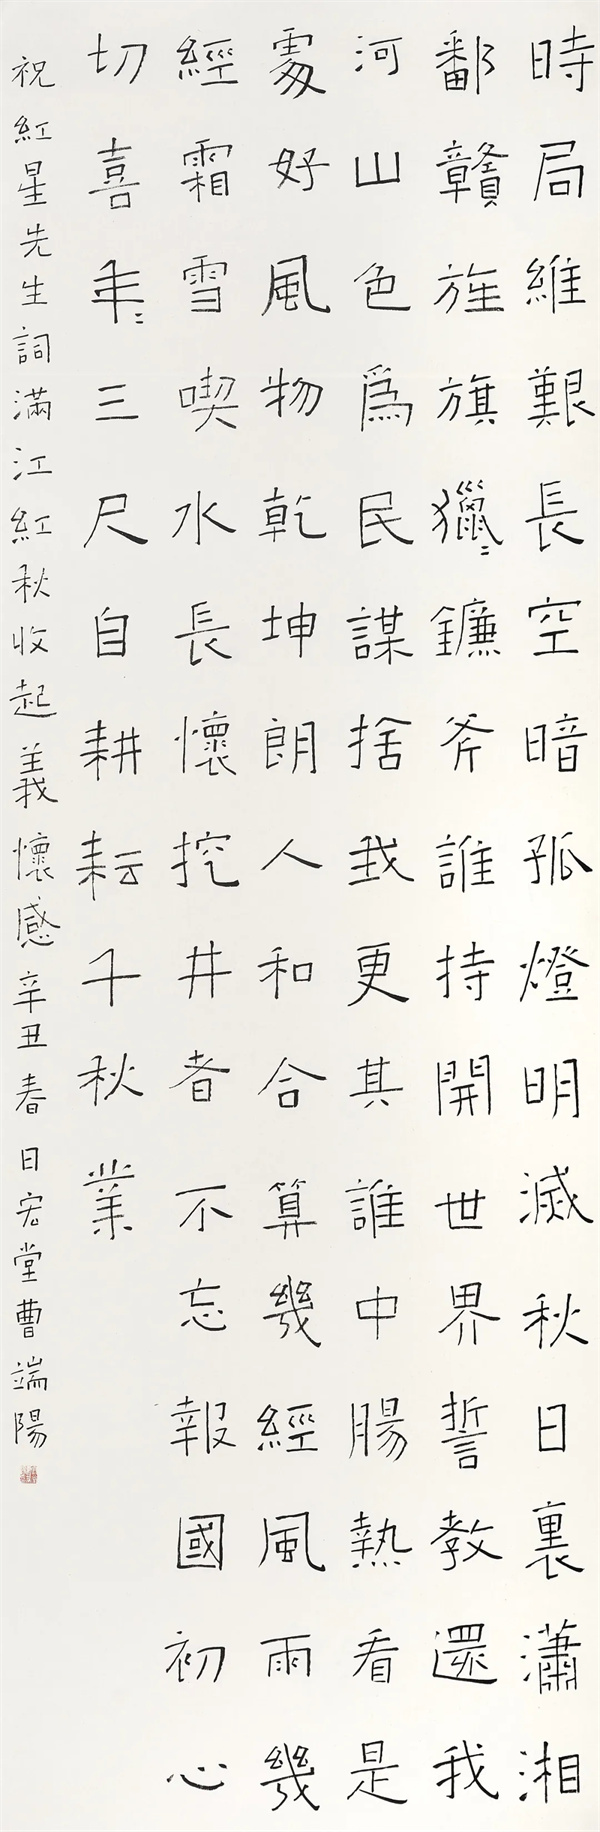 時局維艱長空暗孤燈明滅秋日裏瀟湘
鄱贛旌旗獵〻鐮斧誰持開世界誓教還我
河山色爲民謀捨我更其誰中腸熱看是
處好風物乾坤朗人和合算幾經風雨幾
經霜雪喫水長懷挖井者不忘報國初心
切喜年〻三尺自耕耘千秋業
祝紅星先生詞滿江紅秋收起義懷感辛丑春日宏堂曹端陽